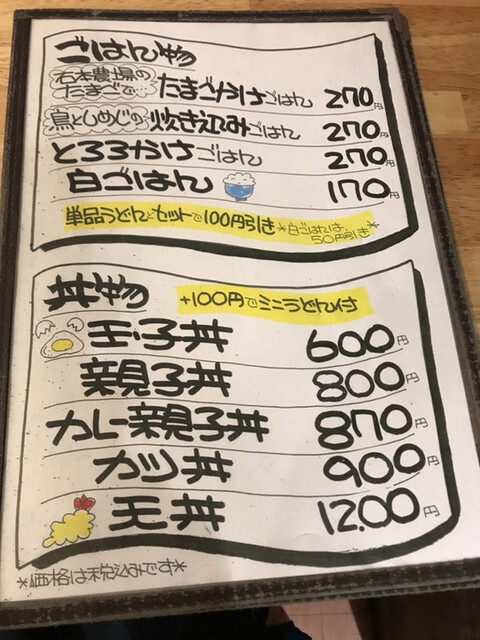 ごはん物
石本農場の
たまごで… たまごかけごはん 270円
鳥としめじの 炊き込みごはん 270円
とろろかけごはん 270円
白ごはん 170円
単品うどんとセットで100円引き *白ごはんは50円引き*
丼物 +100円でミニうどん付
玉子丼 600円
親子丼 800円
カレー親子丼 870円
カツ丼 900円
天丼 1200円
*価格は税込みです*